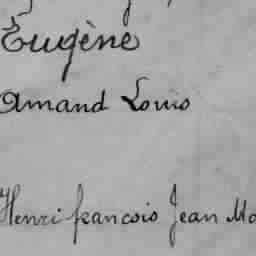 Eugène
Amand Louis
Henri francois Jean